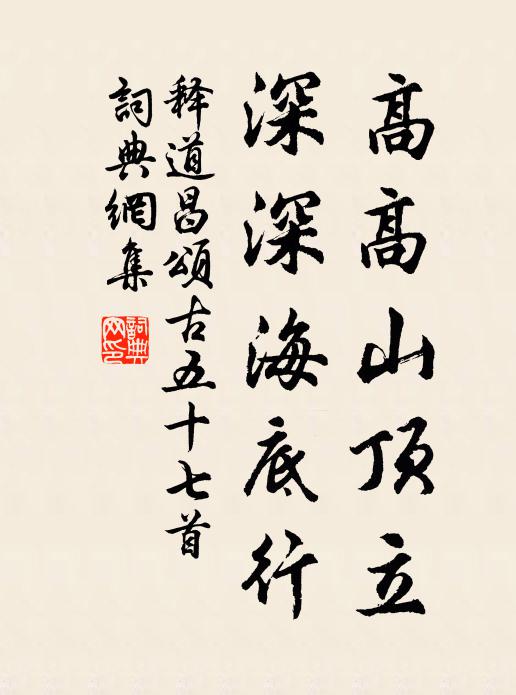 高高山顶立
深深海底行
释道昌頌古五十七首
詞典網集
詞典网印